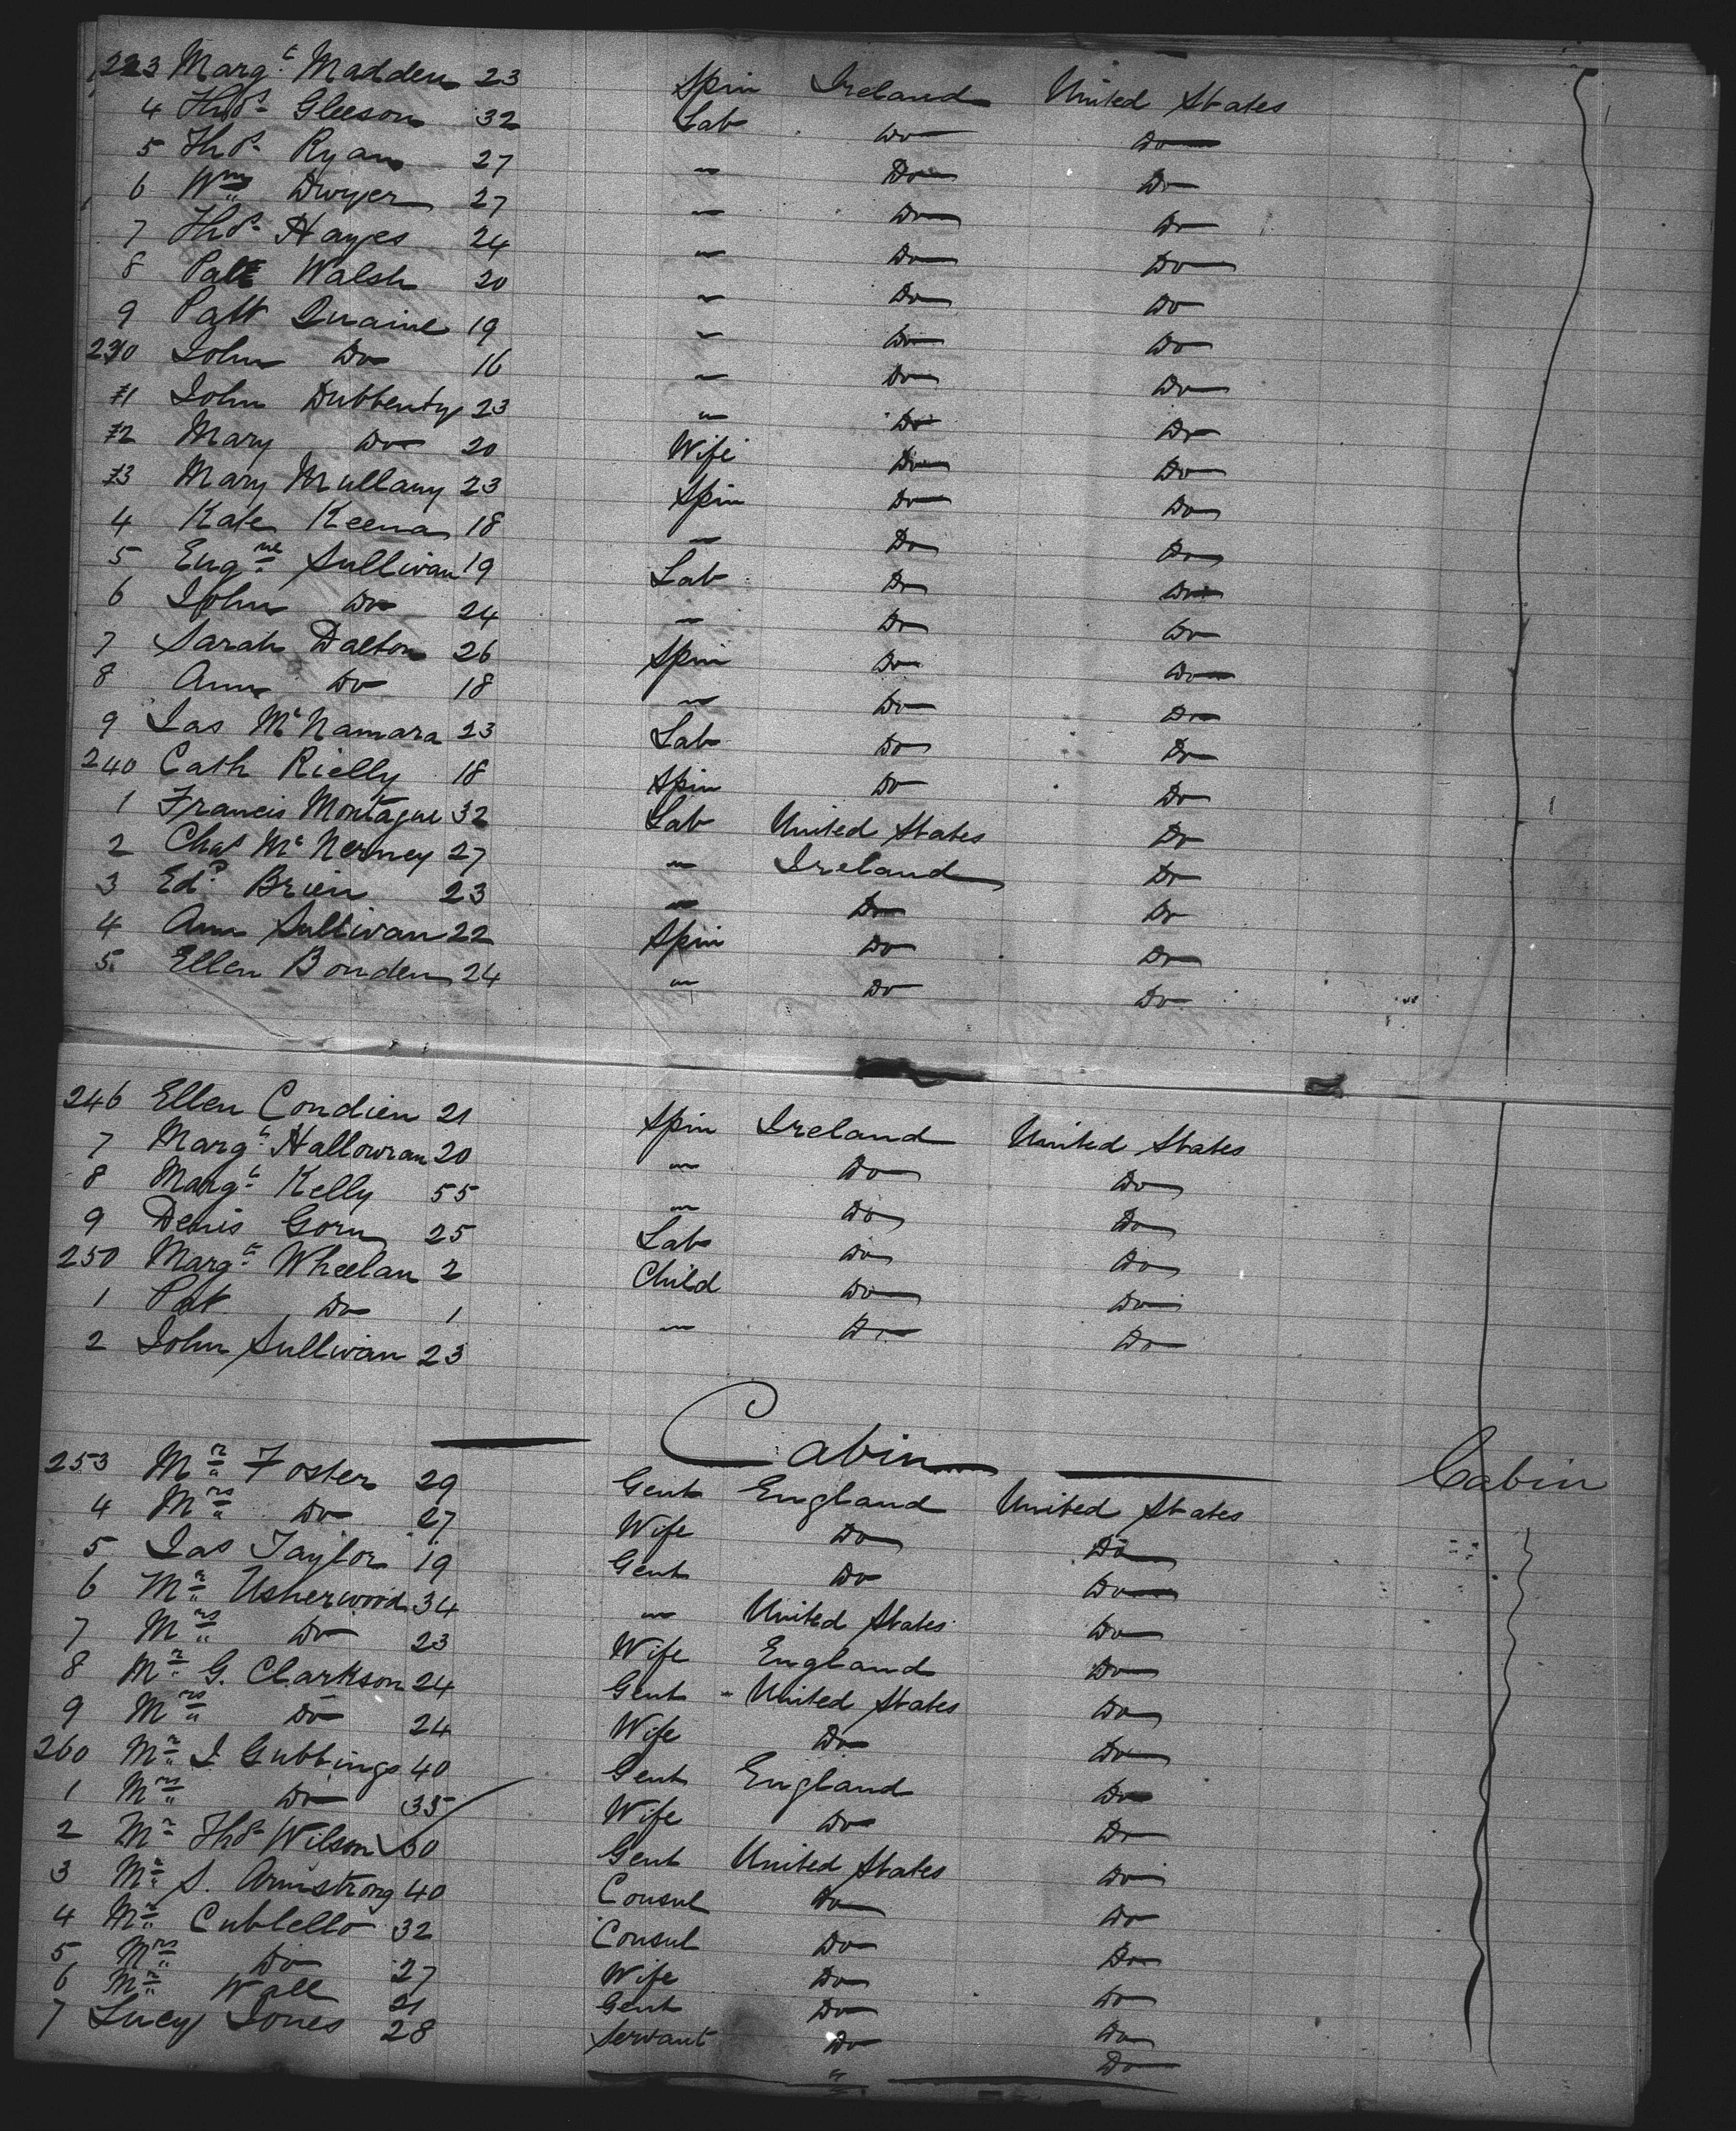 223 Margt Madden 23 Spin Ireland United States
4 Thos Gleeson 32 Lab Do Do
5 Thos Ryan 27 " Do Do
6 Wm Dwyer 27 " Do Do
7 Thos Hayes 24 " Do Do
8 Patt Walsh 20 " Do Do
9 Patt Quaine 19 " Do Do
230 John Do 16 " Do Do
1 John Dubbenty 23 " Do Do
2 Mary Do 20 Wife Do Do
3 Mary Mullany 23 Spin Do Do
4 Kate Keena 18 " Do Do
5 Eugne Sullivan 19 Lab Do Do
6 John Do 24 " Do Do
7 Sarah Dalton 26 Spin Do Do
8 Ann Do 18 " Do Do
9 Jas McNamara 23 Lab Do Do
240 Cath Rielly 18 Spin Do Do
1 Francis Montague 32 Lab United States Do
2 Chas McNerney 27 " Ireland Do
3 Edd Brien 23 " Do Do
4 Ann Sullivan 22 Spin Do Do
5 Ellen Bonden 24 " Do Do
246 Ellen Condien 21 Spin Ireland United States
7 Margt Hallowran 20 " Do Do
8 Margt Kelly 55 " Do Do
9 Denis Gorn 25 Lab Do Do
250 Margt Wheelan 2 Child Do Do
1 Pat Do 1 " Do Do
2 John Sullivan 23
Cabin
253 Mr Foster 29 Gent England United States Cabin
4 Mrs Do 27 Wife Do Do
5 Jas Taylor 19 Gent Do Do
6 Mr Usherwood 34 " United States Do
7 Mrs Do 23 Wife England Do
8 Mr G. Clarkson 24 Gent United States Do
9 Mrs Do 24 Wife Do Do
260 Mr J Gubbings 40 Gent England Do
1 Mrs Do 35 Wife Do Do
2 Mr Thos Wilson 50 Gent United States Do
3 Mr S. Armstrong 40 Consul Do Do
4 Mr Cublello 32 Consul Do Do
5 Mrs Do 27 Wife Do Do
6 Mr Wall 21 Gent Do Do
7 Lucy Jones 28 Servant Do Do
"